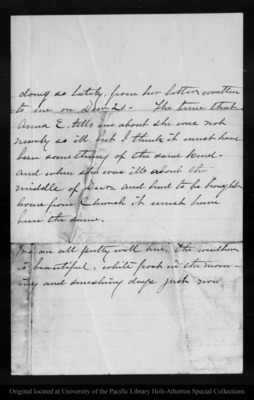 doing so lately, from her letter written
to me on Dec 23 - The time that
Anna E. tells me about she was not
nearly so ill but I think it must have
been something of the same kind.
and when she was ill about the
middle of Dec. and had to be brought
home from Church it must have
been the same.
We are all pretty well here. The weather
is beautiful, white frost in the morn-
ing and sunshiny days just now
Original located at University of the Pacific Library Holt-Atherton Special Collections